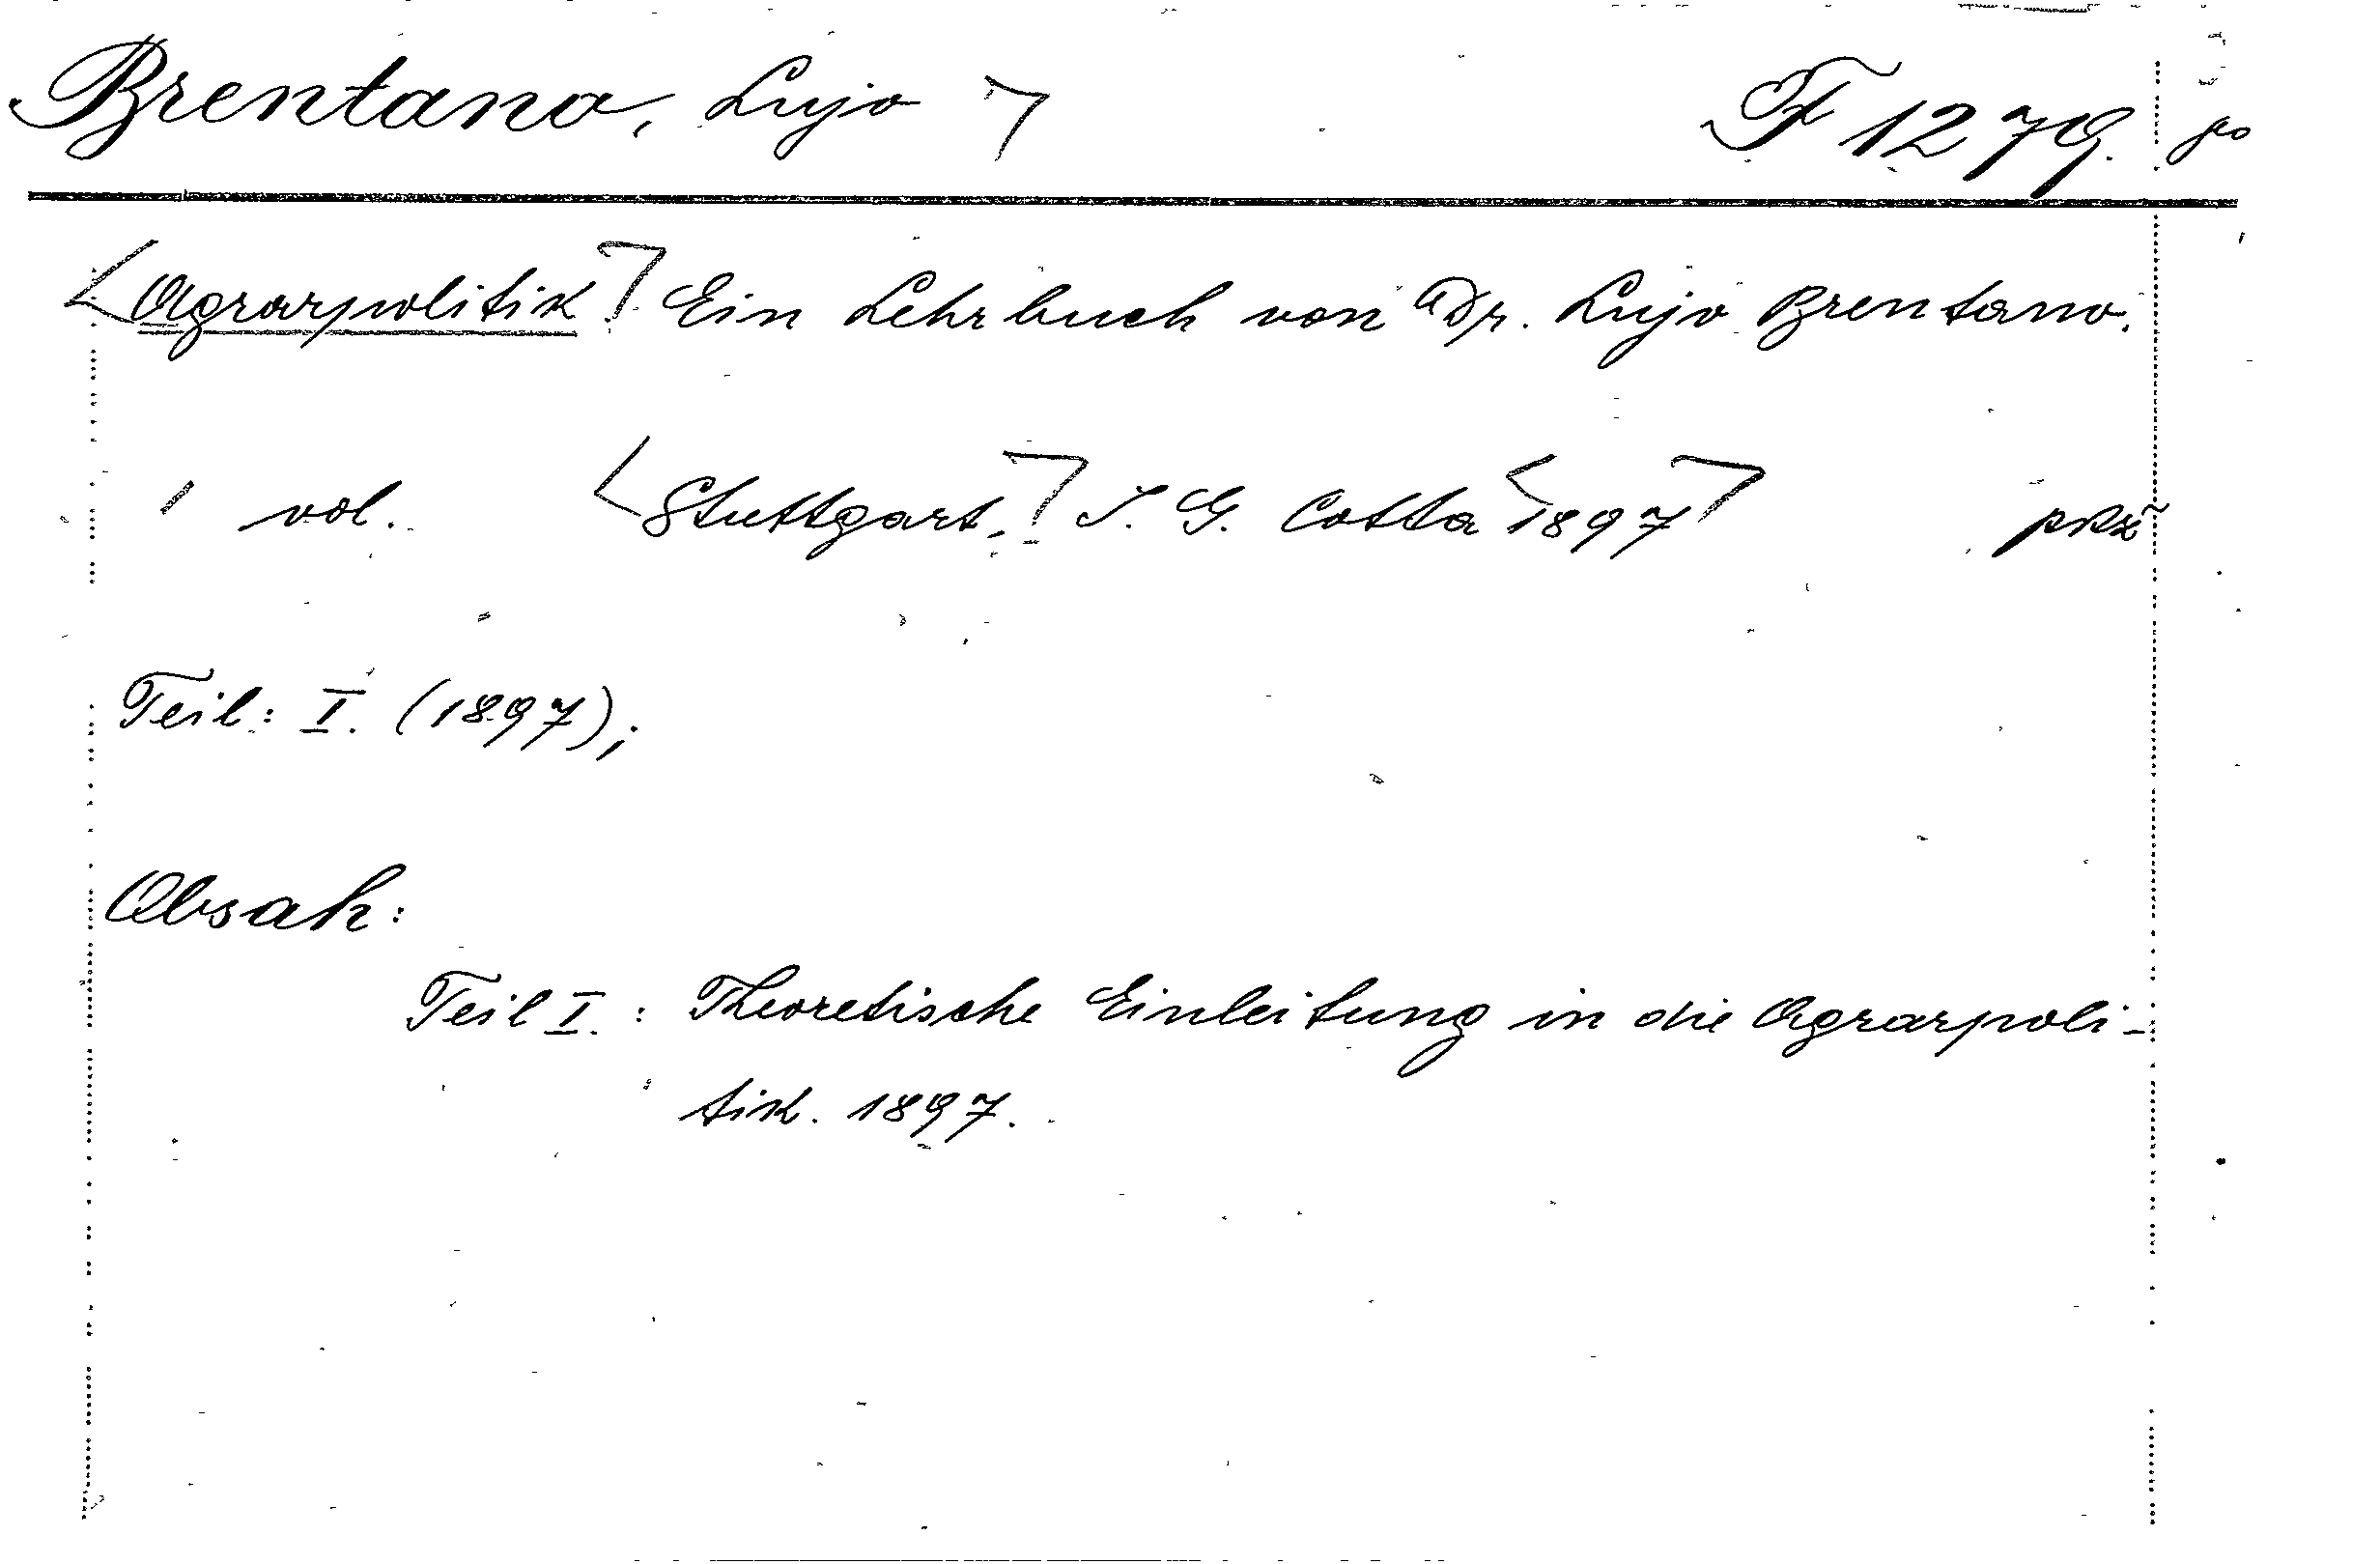 Brentano, Lujo F 1279.
Agrarpolitik. Ein Lehrbuch von Dr. Lujo Brentano.
vol. Stuttgart, J. G. Cotta 1897
Teil: I. (1897);
Obsah:
Teil I.: Theoretische Einleitung in die Agrarpoli-
tik. 1897.